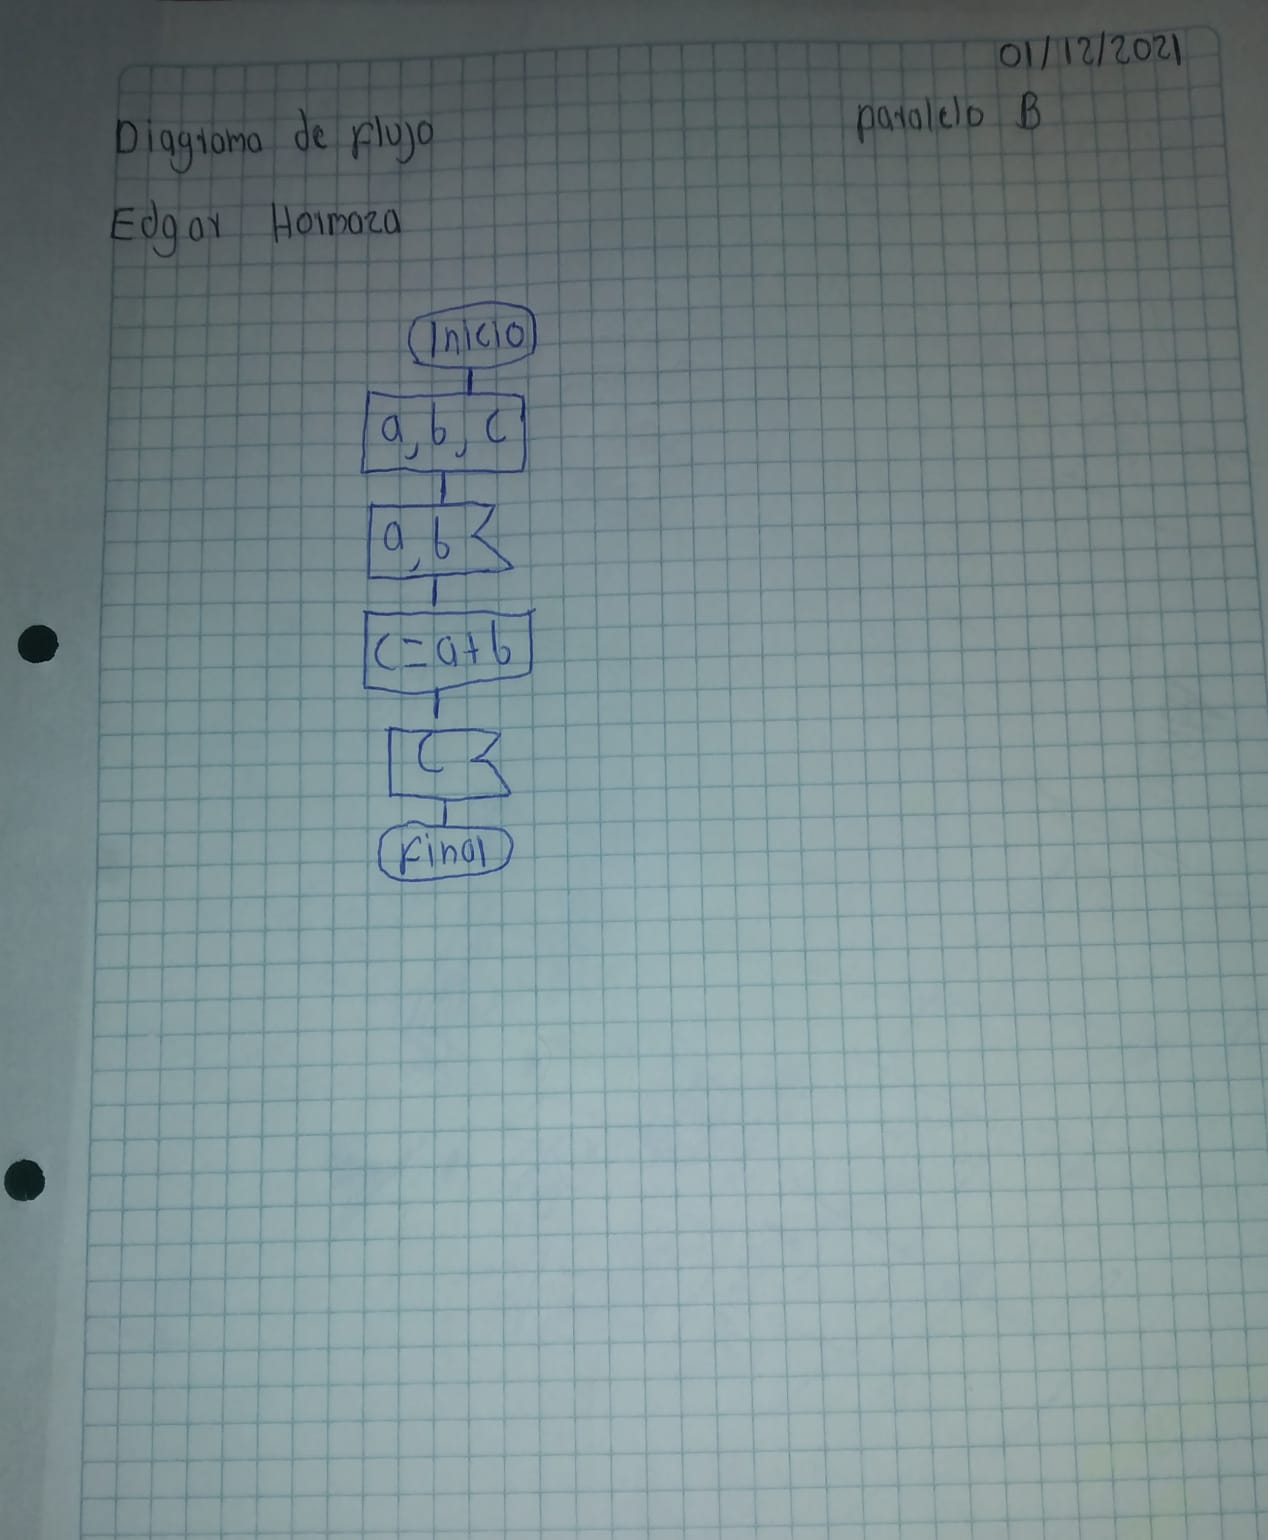 01/12/2021
Diagrama de Flujo
paralelo B
Edgar Hormaza
Inicio
a, b, c
a, b
c=a+b
c
Final